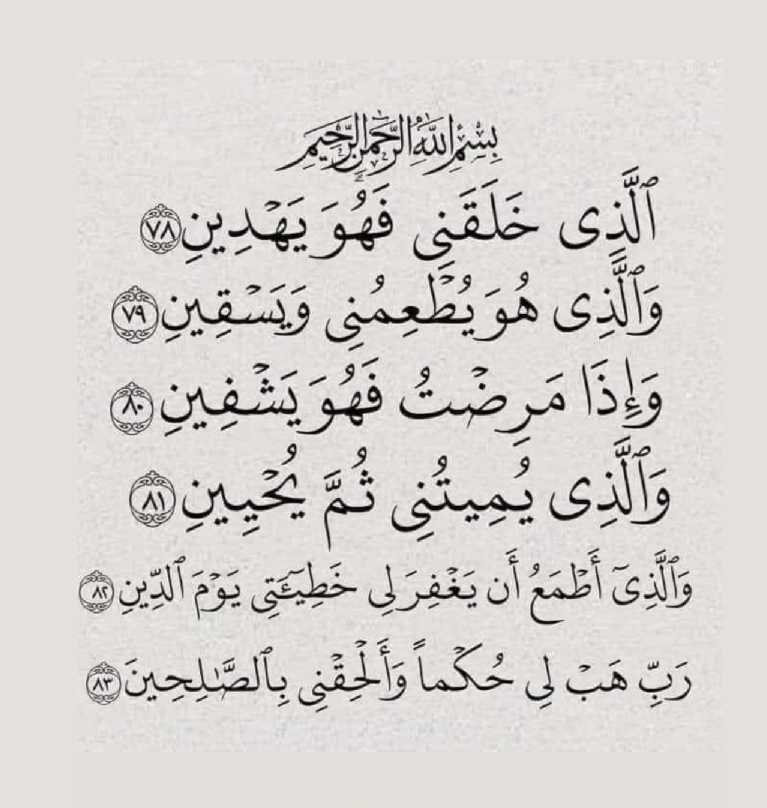 بِسْمِ اللَّهِ الرَّحْمَٰنِ الرَّحِيمِ
ٱلَّذِى خَلَقَنِى فَهُوَ يَهْدِينِ ٧٨
وَٱلَّذِى هُوَ يُطْعِمُنِى وَيَسْقِينِ ٧٩
وَإِذَا مَرِضْتُ فَهُوَ يَشْفِينِ ٨٠
وَٱلَّذِى يُمِيتُنِى ثُمَّ يُحْيِينِ ٨١
وَٱلَّذِىٓ أَطْمَعُ أَن يَغْفِرَ لِى خَطِيٓـَٔتِى يَوْمَ ٱلدِّينِ ٨٢
رَبِّ هَبْ لِى حُكْماً وَأَلْحِقْنِى بِٱلصَّـٰلِحِينَ ٨٣